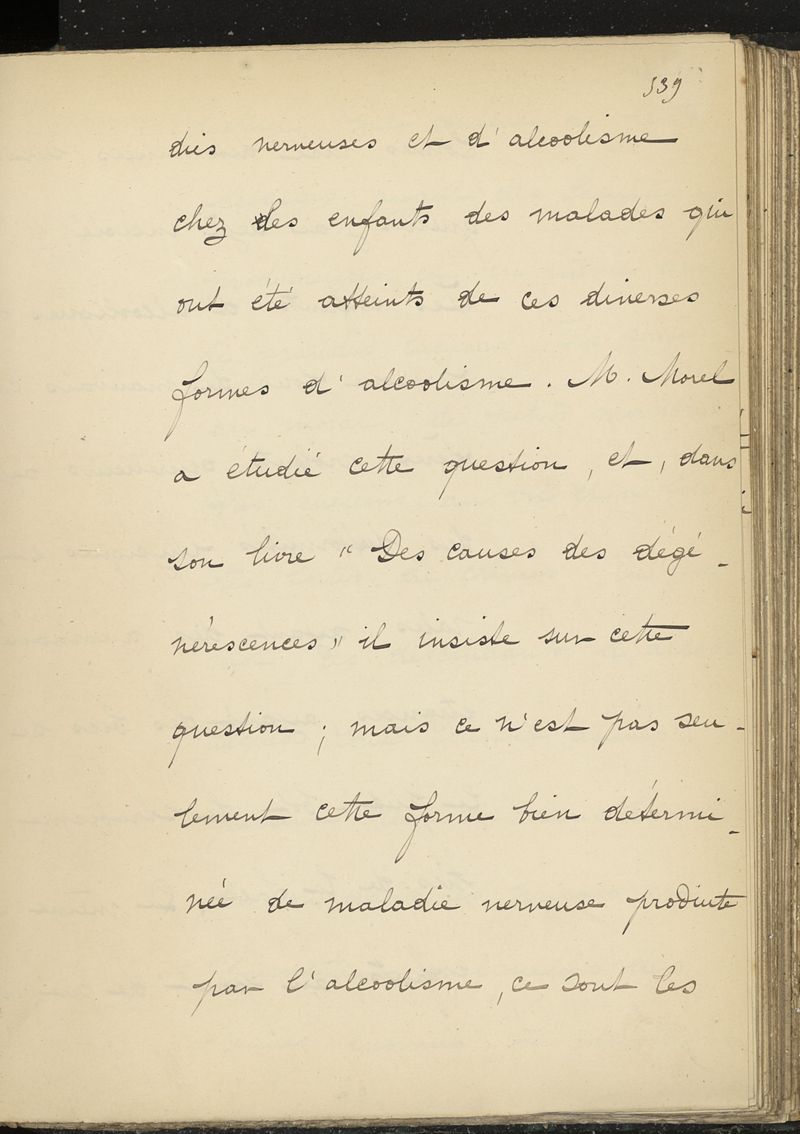 539
dies nerveuses et d'alcoolisme
chez les enfants des malades qui
ont été atteints de ces diverses
formes d'alcoolisme. M. Morel
a étudié cette question, et, dans
son livre " Des causes des dégé-
nérescences " il insiste sur cette
question ; mais ce n'est pas seu-
lement cette forme bien détermi-
née de maladie nerveuse produite
par l'alcoolisme, ce sont les